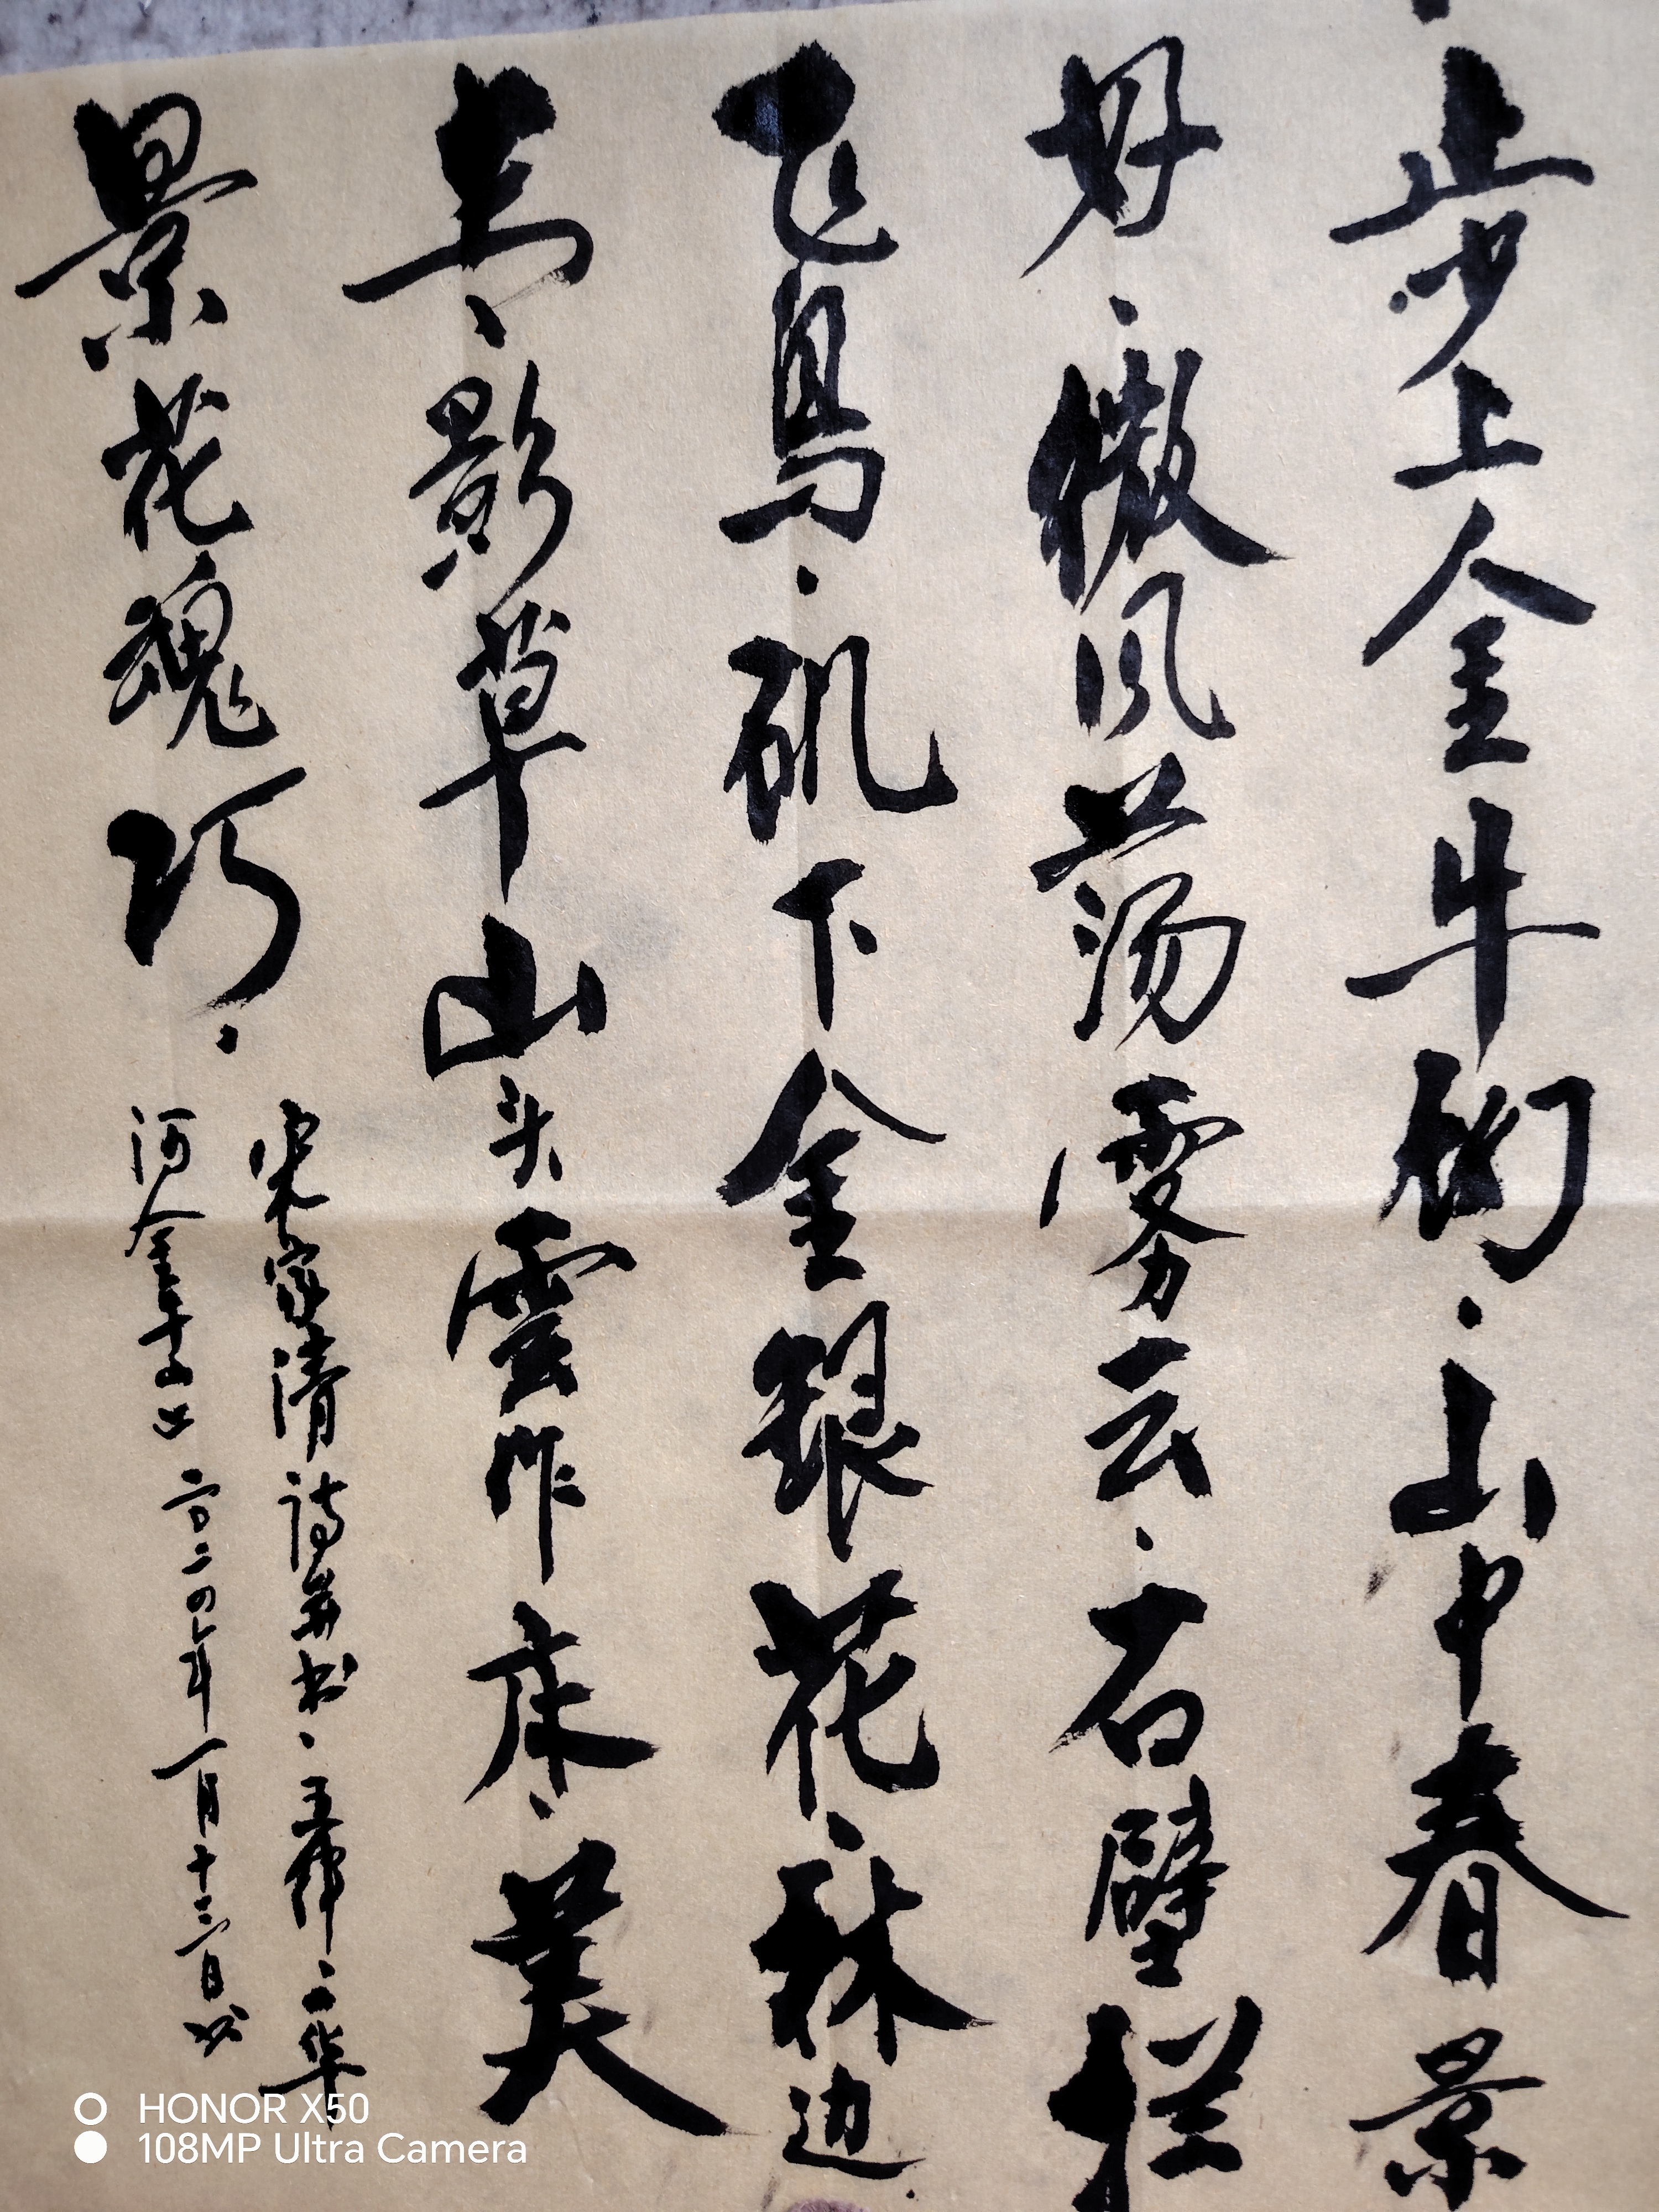 步上金牛衕·山中春景
好·微风荡雾云·石壁拦
飞鸟·矶下金银花·林边
青·影草山头雲作床·美
景花魂巧·
宋家清诗并书·五律·二华
河金牛山 二〇二四年一月十三日书
HONOR X50
108MP Ultra Camera